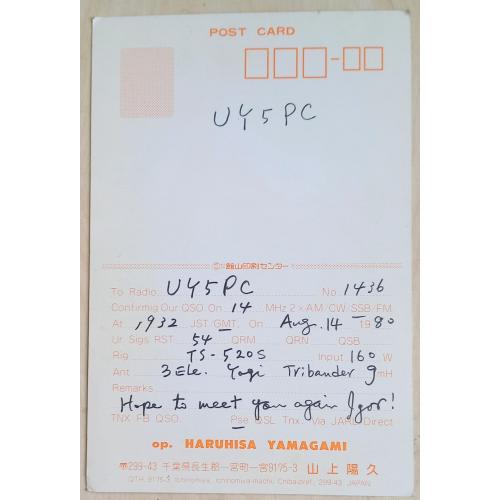 POST CARD
UY5PC
館山印刷センター
To Radio UY5PC No. 1436
Confirmig Our QSO On 14 MHz 2×AM/CW SSB/FM.
At 1932 JST/GMT. On Aug. 14 1980
Ur Sigs RST 54 QRM QRN QSB
Rig TS-520S Input 160 W
Ant 3 Ele. Yagi Tribander 9 mH
Remarks
Hope to meet you again Igor!
TNX FB QSO. Pse QSL Tnx. Via JARL Direct
op. HARUHISA YAMAGAMI
〒299-43 千葉県長生郡一宮町一宮9175-3 山上陽久
QTH. 9175-3 Ichinomiya, Ichinomiya-machi, Chiba pref., 299-43 JAPAN